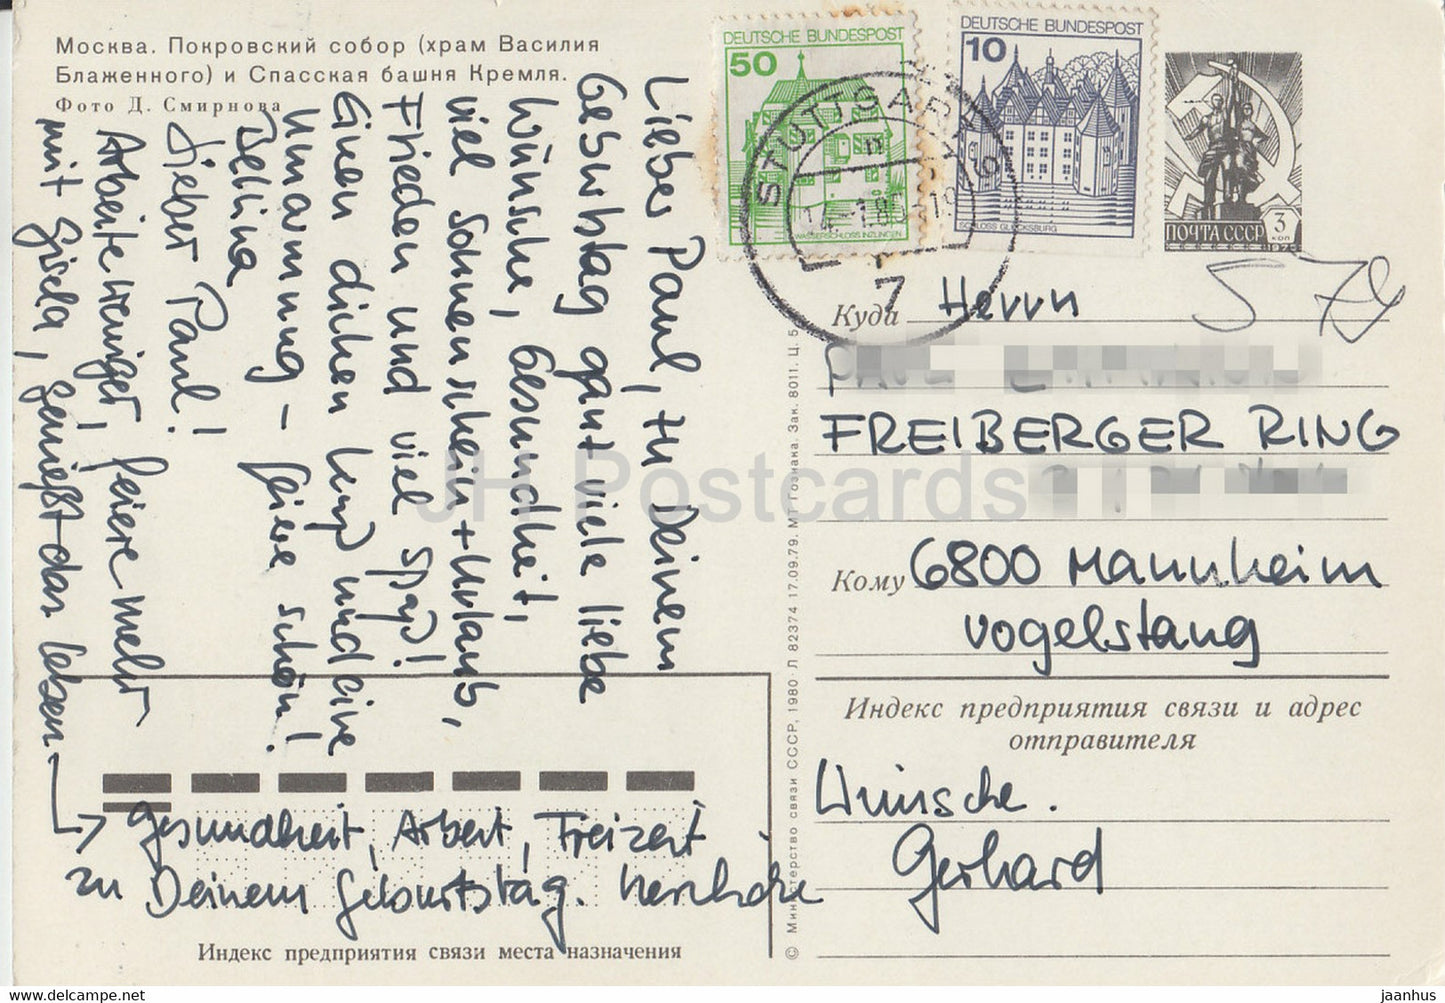 Москва. Покровский собор (храм Василия
Блаженного) и Спасская башня Кремля.
Фото Д. Смирнова
Lieber Paul, zu Deinem
Geburtstag ganz viele liebe
Wünsche, Gesundheit,
viel Sonnenschein + Urlaub,
Frieden und viel Spaß!
Einen dicken Kuß und eine
Umarmung – feiere schön!
Bettina
Lieber Paul!
Arbeite weniger, feiere mehr
mit Gisela, genießt das Leben
→ Gesundheit, Arbeit, Freizeit
zu Deinem Geburtstag. herzliche
Wünsche.
Gerhard
Индекс предприятия связи места назначения
© Министерство связи СССР, 1980. Л 82374 17.09.79. МТ Гознака. Зак. 8011. Ц. 5
DEUTSCHE BUNDESPOST
50
WASSERSCHLOSS INZLINGEN
DEUTSCHE BUNDESPOST
10
SCHLOSS GLÜCKSBURG
STUTTGART
7
ПОЧТА СССР 3 коп
Куда Herrn
FREIBERGER RING
Кому 6800 Mannheim
Vogelstang
Индекс предприятия связи и адрес
отправителя
JH Postcards
www.delcampe.net
jaanhus